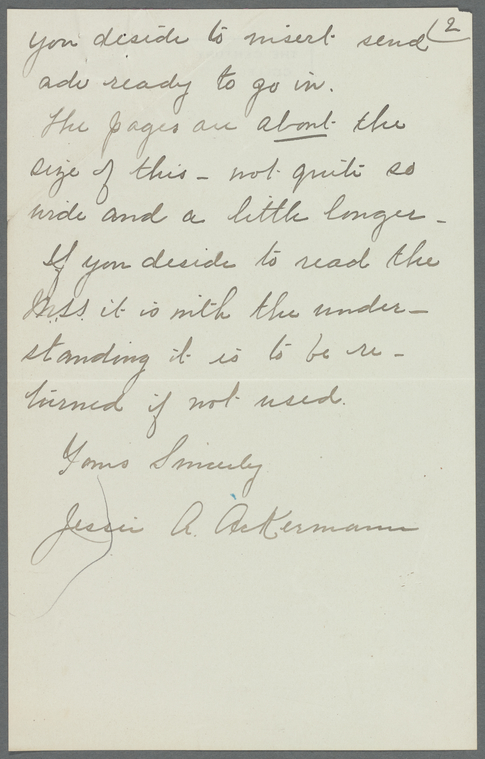 (2
you deside to insert send
adv ready to go in.
The pages are about the
size of this – not quite so
wide and a little longer –
If you deside to read the
M.S.S. it is with the under–
standing it is to be re–
turned if not used.
Yours Sincerely
Jessie A. Ackermann